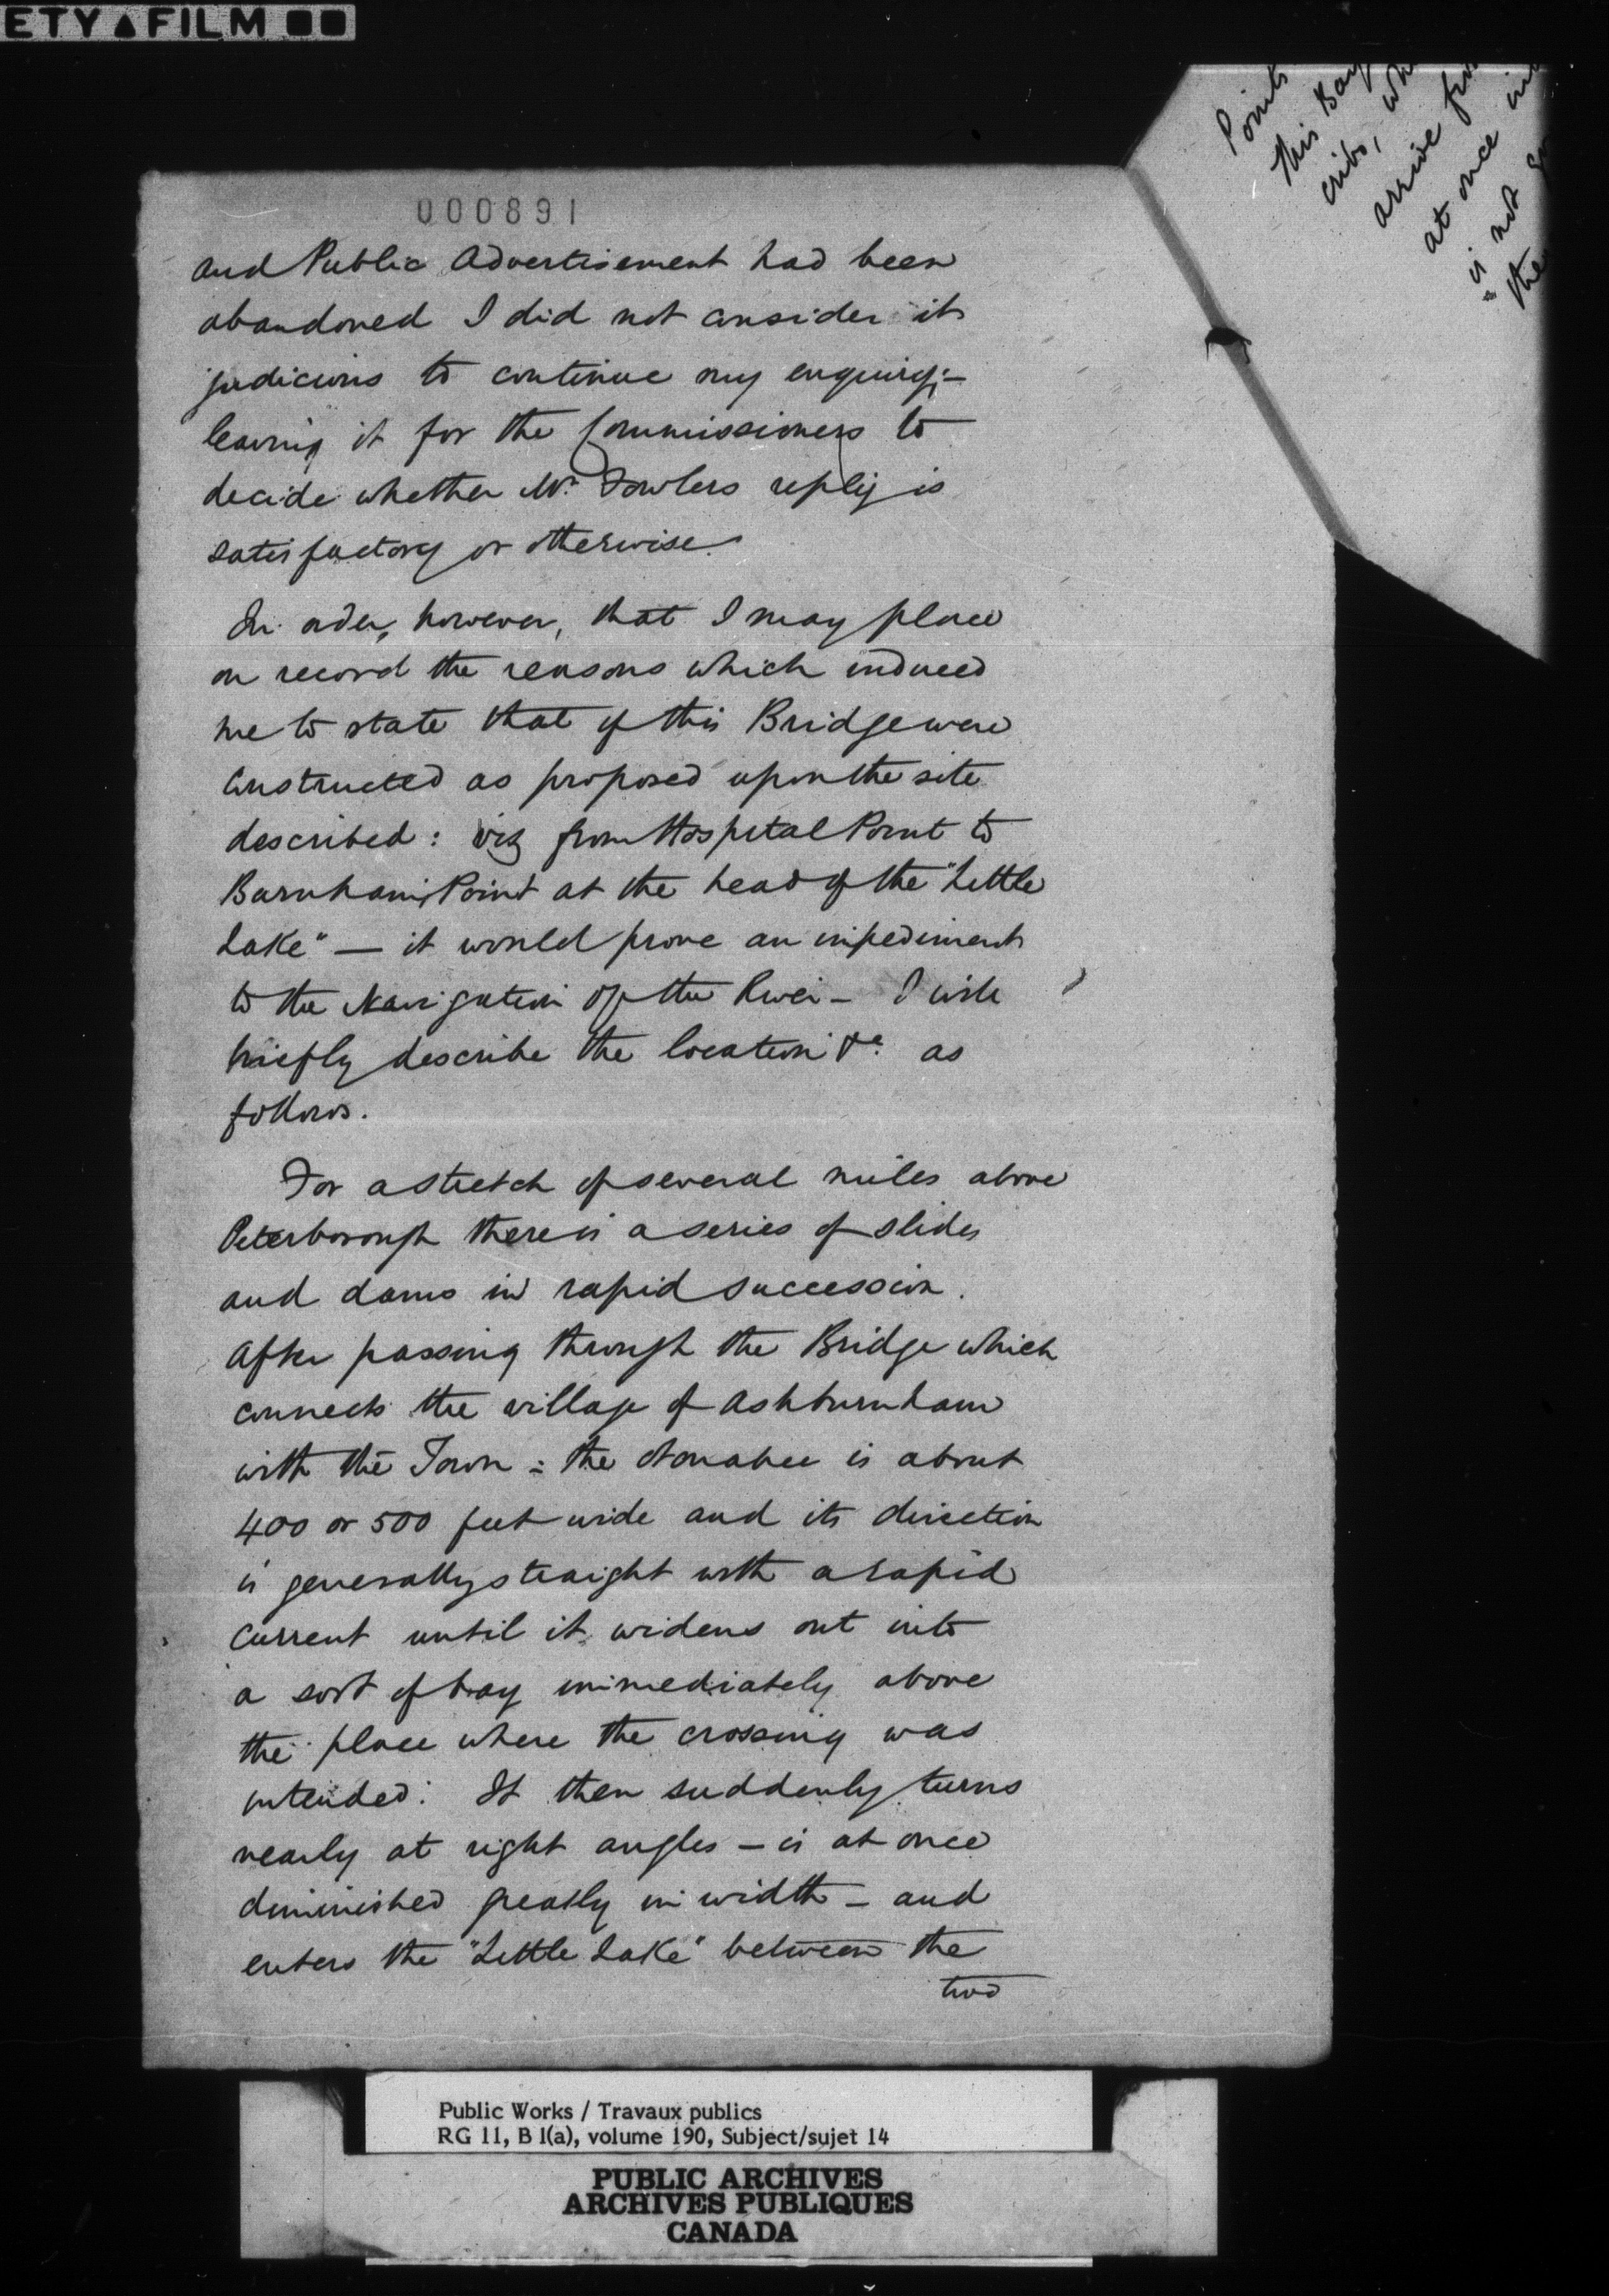 ETY FILM
Points
this Bay
cribs, wh
arrive fro
at once in
is not
the
000891
and Public Advertisement had been
abandoned I did not consider it
judicious to continue my enquiry;–
leaving it for the Commissioners to
decide whether Mr. Fowlers reply is
satisfactory or otherwise.
In order, however, that I may place
on record the reasons which induced
me to state that if this Bridge were
constructed as proposed upon the site
described: viz from Hospital Point to
Barnhams Point at the head of the "Little
Lake" — it would prove an impediment
to the Navigation of the River – I will
briefly describe the location &c. as
follows.
For a stretch of several miles above
Peterborough there is a series of slides
and dams in rapid succession.
After passing through the Bridge which
connects the village of Ashburnham
with the Town : the Otonabee is about
400 or 500 feet wide and its direction
is generally straight with a rapid
current until it widens out into
a sort of bay immediately above
the place where the crossing was
intended: It then suddenly turns
nearly at right angles – is at once
diminished greatly in width – and
enters the "Little Lake" between the
two
Public Works / Travaux publics
RG 11, B 1(a), volume 190, Subject/sujet 14
PUBLIC ARCHIVES
ARCHIVES PUBLIQUES
CANADA